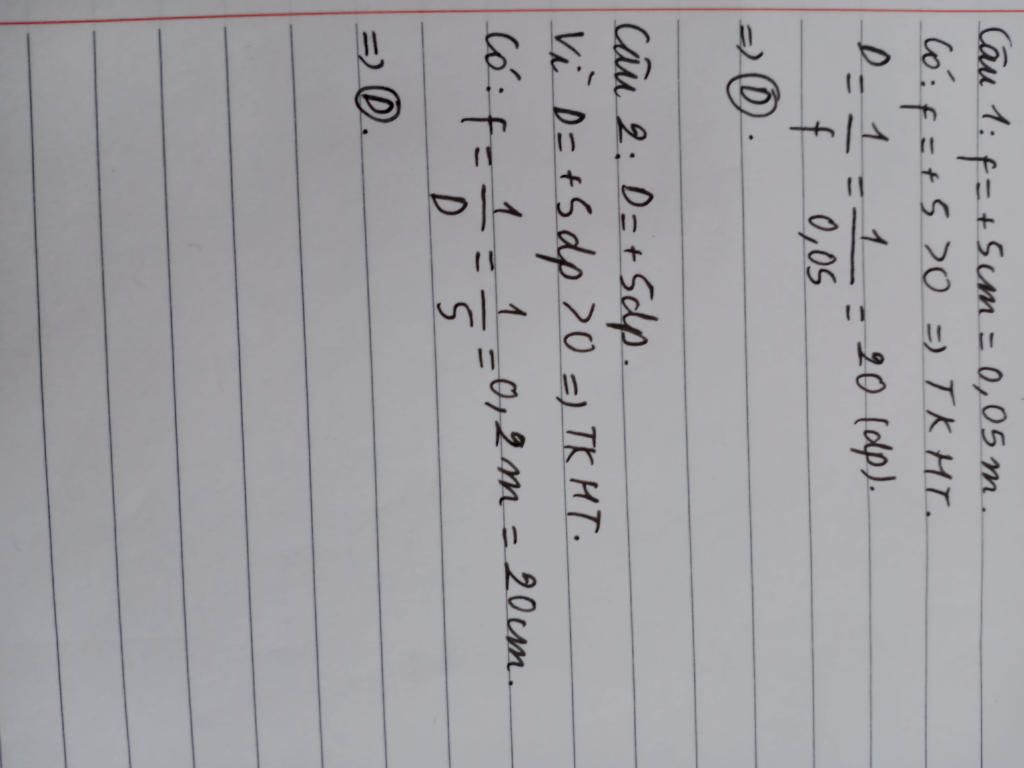 Câu 1: f = + 5cm = 0,05m.
Có: f = + 5 > 0 => TKHT.
D = 1/f = 1/0,05 = 20 (dp).
=> D.
Câu 2: D = + 5dp.
Vì D = + 5dp > 0 => TKHT.
Có: f = 1/D = 1/5 = 0,2m = 20cm.
=> D.